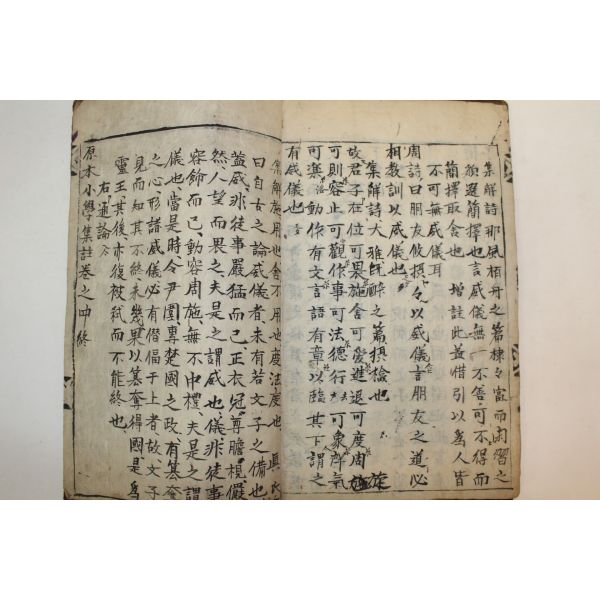 集解詩邶風栢舟之篇棣々富而閑習之
貌選簡擇也言威儀無一不善可不得而
簡擇取舍也 增註此盖借引以爲人皆
不可無威儀耳
周詩曰朋友攸攝攝以威儀言朋友之道必
相教訓以威儀也
集解詩大雅旣醉之篇攝檢也
故君子在位可畏施舍可愛進退可度周旋
可則容止可觀作事可法德行可象聲氣
可樂動作有文言語有章以臨其下謂之
有威儀也
集解施用也舍不用也度法度也 眞氏
曰自古之論威儀者未有若文子之備也
盖威非徒事嚴猛而已正衣冠尊瞻視儼
然人望而畏之夫是之謂威也儀非徒事
容飾而已動容周施無不中禮夫是之謂
儀也當是時令尹圍專楚國之政有簒奪
之心形諸威儀必有僭偪于上者故文子
見而知其不終未幾果以簒奪得國是爲
靈王其後亦復被弑而不能終也
右通論
原本小學集註卷之中終